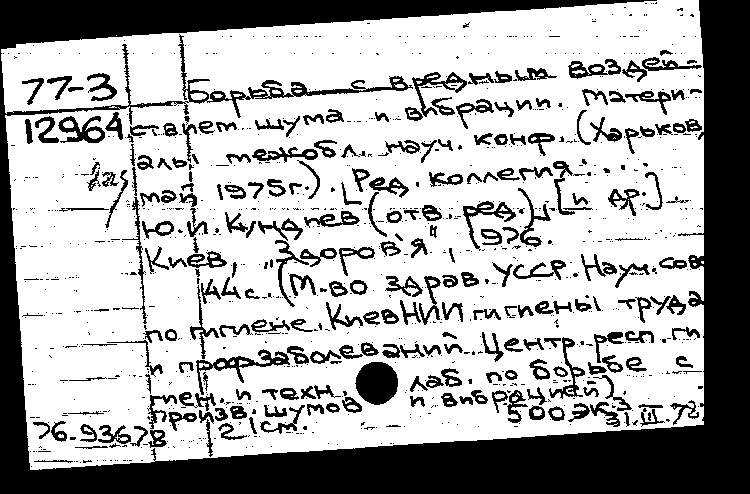 77-3 Борьба с вредным воздей-
12964 ствием шума и вибрации. Матери-
алы межобл. науч. конф. (Харьков,
май 1975г.). [Ред. коллегия: ...
Ю.И. Кундиев (отв. ред.)], [и др.].
Киев, „Здоров'я", 1976.
44с. (М-во здрав. УССР. Науч. сов
по гигиене. Киев НИИ гигиены труда
и профзаболеваний. Центр. респ. ги
гиен. и техн. лаб. по борьбе с
произв. шумов и вибрацией).
76.93678 21см. 500 экз
31.III.78